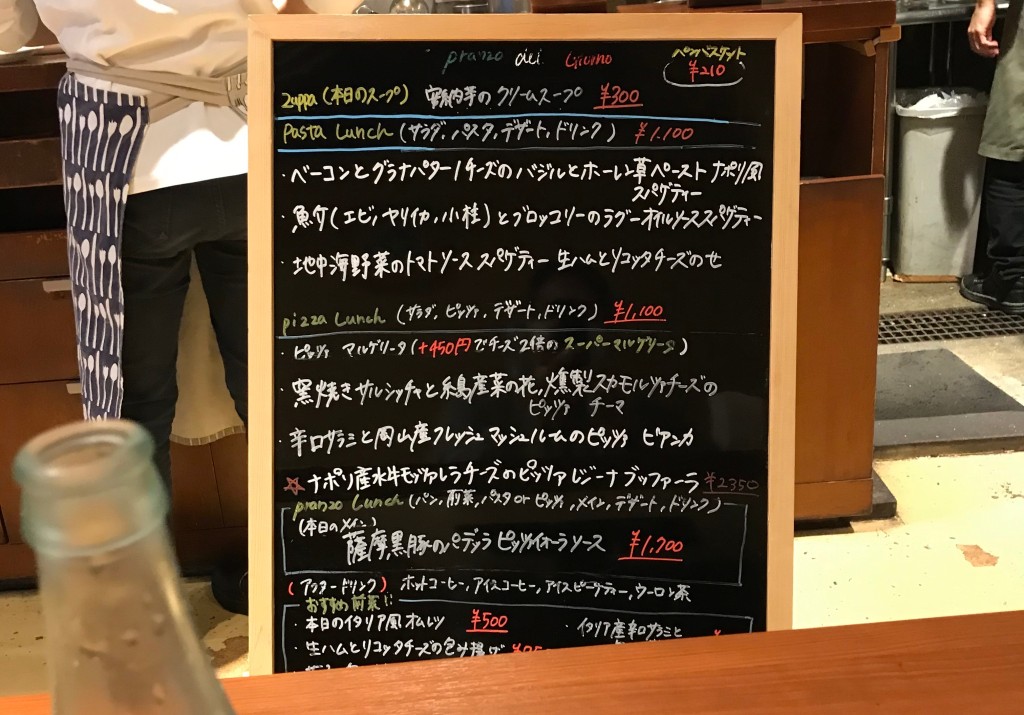 pranzo del Giorno
パンバスケット
¥210
zuppa (本日のスープ) 安納芋のクリームスープ ¥300
Pasta Lunch (サラダ, パスタ, デザート, ドリンク) ¥1,100
・ベーコンとグラナパダーノチーズのバジルとホーレン草ペースト ナポリ風
スパゲティー
・魚介(エビ, ヤリイカ, 小柱)とブロッコリーのラグーオイルソーススパゲティー
・地中海野菜のトマトソース スパゲティー 生ハムとリコッタチーズのせ
pizza Lunch (サラダ, ピッツァ, デザート, ドリンク) ¥1,100
・ピッツァ マルゲリータ(+450円でチーズ2倍のスーパーマルゲリータ)
・窯焼きサルシッチャと糸島産菜の花, 燻製スカモルツァチーズの
ピッツァ チーマ
・辛口サラミと岡山産フレッシュマッシュルームのピッツァ ビアンカ
☆ナポリ産水牛モッツァレラチーズのピッツァ レジーナブッファーラ ¥2350
pranzo Lunch (パン, 前菜, パスタ or ピッツァ, メイン, デザート, ドリンク)
(本日のメイン)
薩摩黒豚のパデッラ ピッツァイオーラソース ¥1,700
(アフタードリンク) ホットコーヒー, アイスコーヒー, アイスピーチティー, ウーロン茶
おすすめ前菜!!
・本日のイタリア風オムレツ ¥500
・イタリア産辛口サラミと
・生ハムとリコッタチーズの包み揚げ